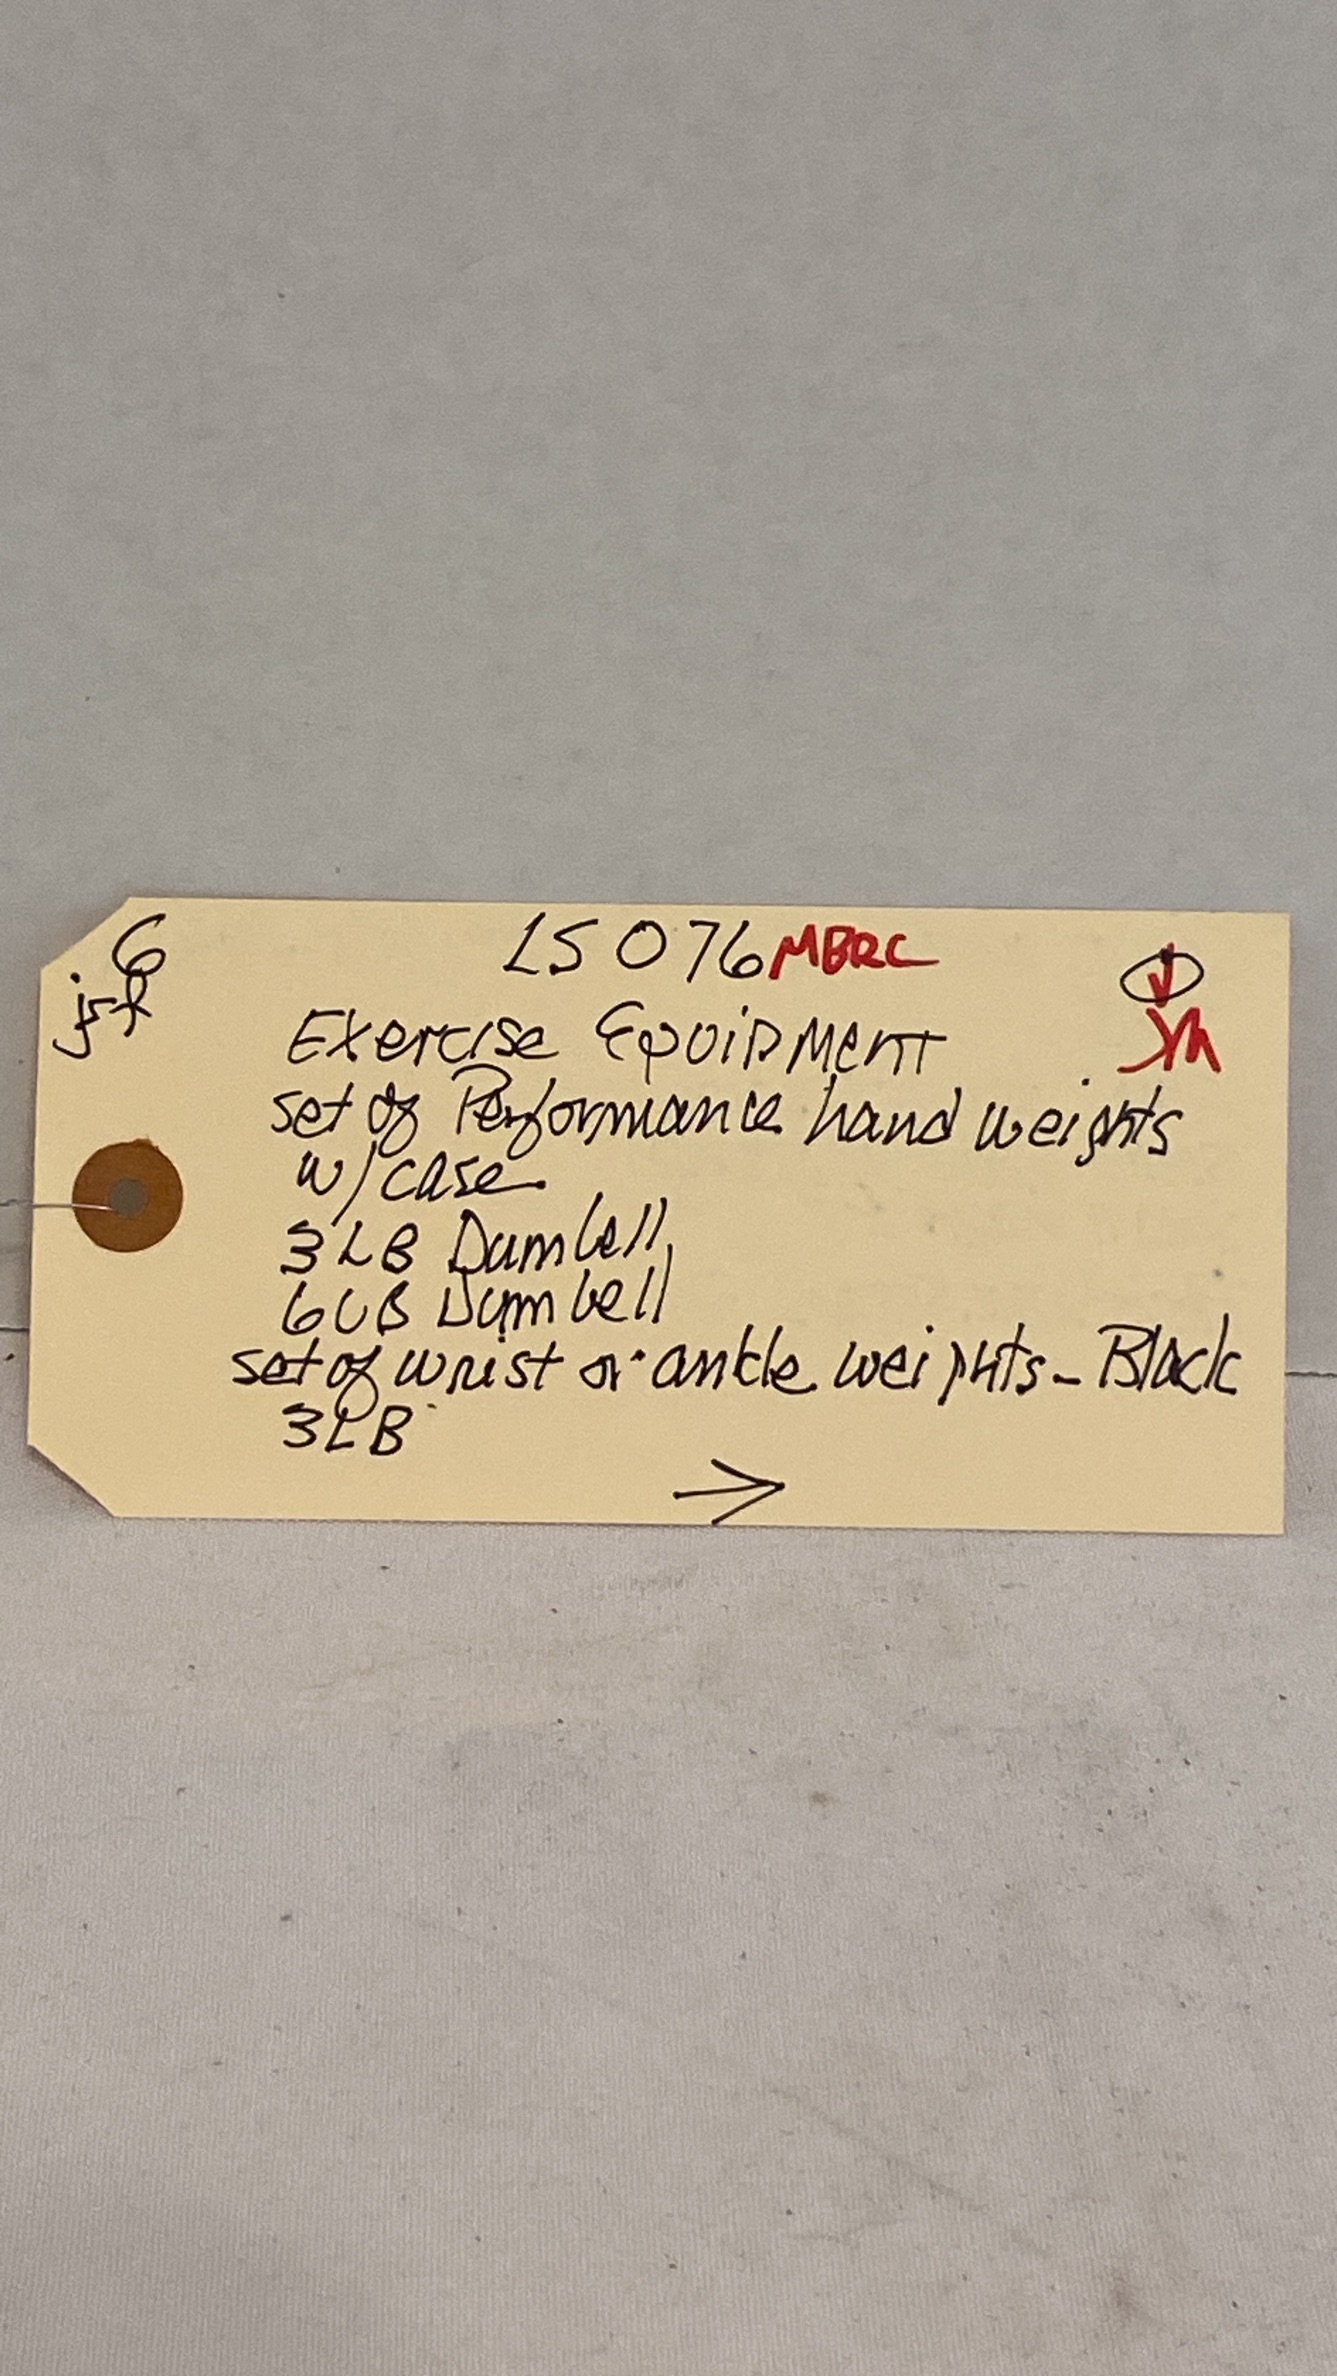 6
LS 076 MBRC
Exercise Equipment
set of Performance hand weights
w/case
3LB Dumbell
6LB Dumbell
set of wrist or ankle weights - Black
3LB
→